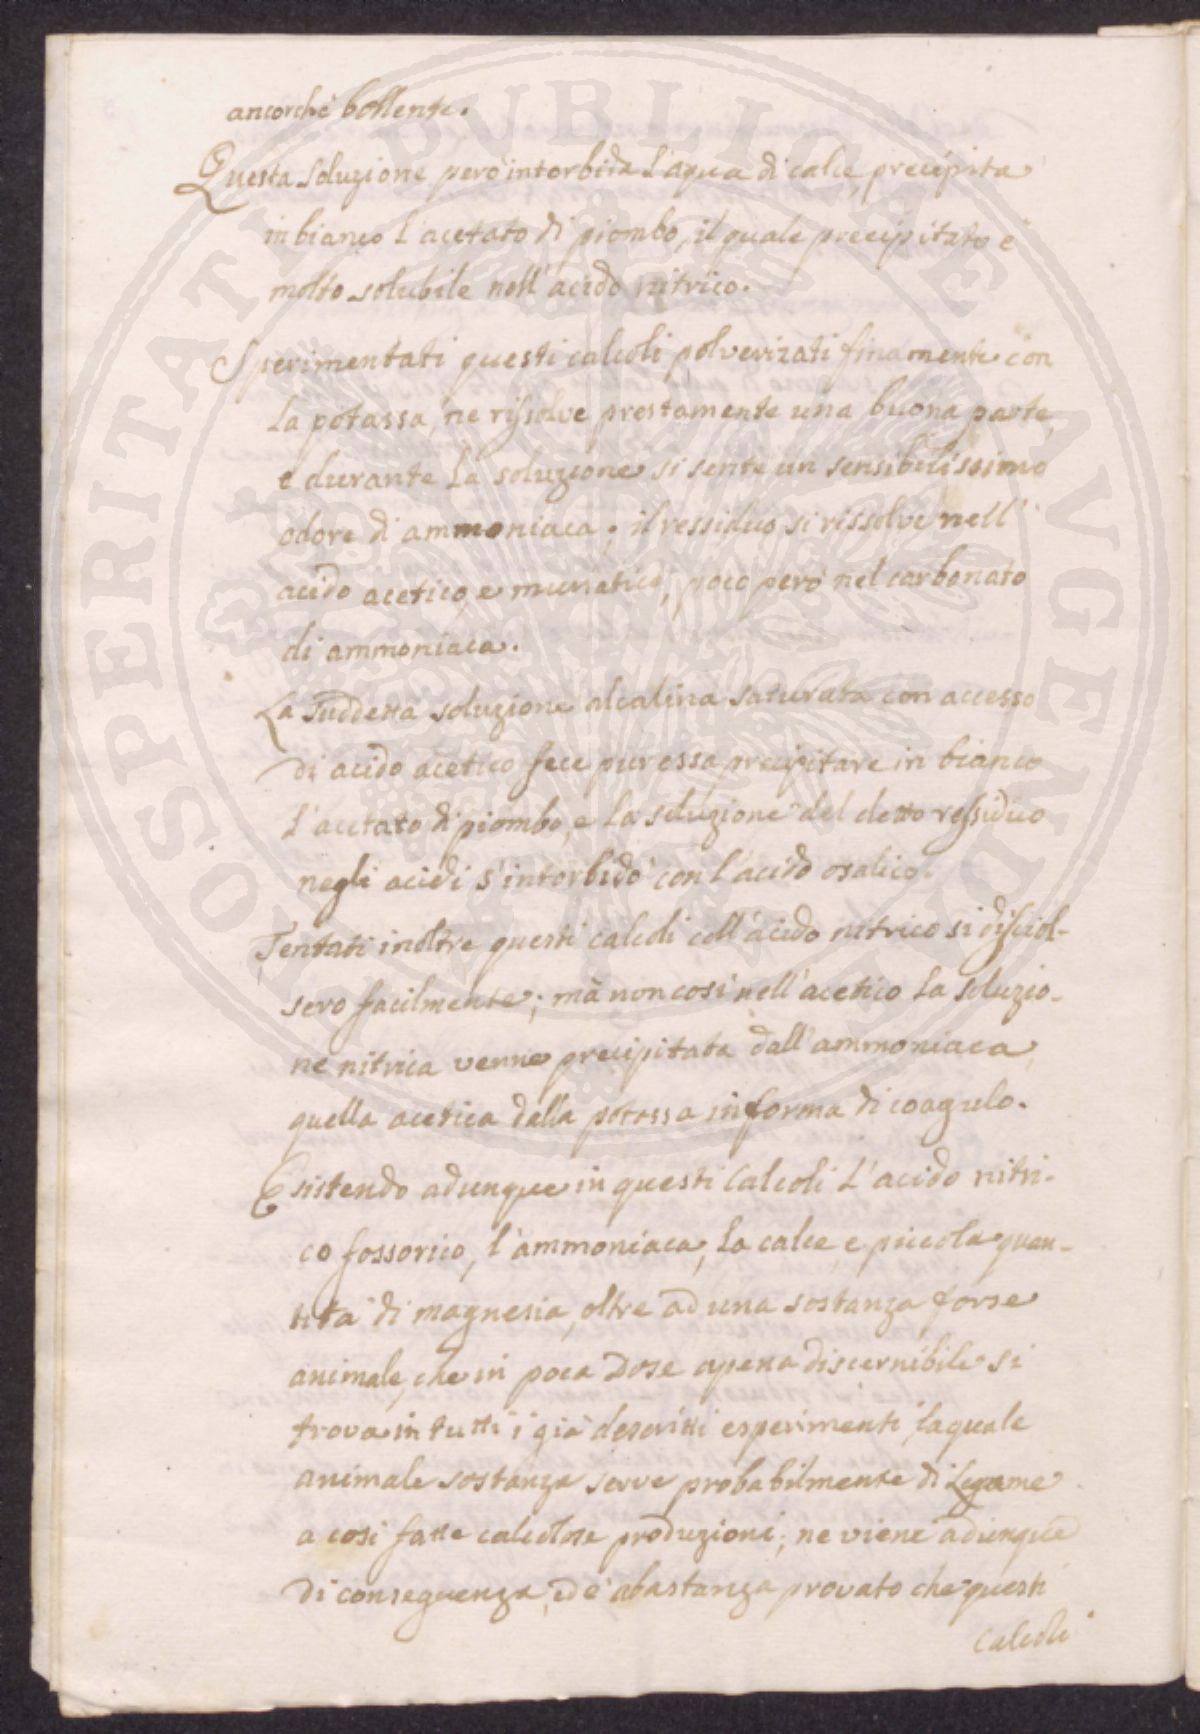 ancorchè bollente.
Questa soluzione però intorbida l'aqua di calce, precipita
in bianco l'acetato di piombo, il quale precipitato è
molto solubile nell'acido nitrico.
Sperimentati questi calcoli polverizati finamente con
la potassa, ne rissolve prestamente una buona parte,
e durante la soluzione si sente un sensibilissimo
odore di ammoniaca; il ressiduo si rissolve nell'
acido acetico, e muriatico, poco però nel carbonato
di ammoniaca.
La suddetta soluzione alcalina saturata con accesso
di acido acetico fece pur essa precipitare in bianco
l'acetato di piombo, e la soluzione del detto ressiduo
negli acidi s'intorbidò con l'acido osalico.
Tentati inoltre questi calcoli coll'acido nitrico si disciol-
sero facilmente; mà non così nell'acetico la soluzio-
ne nitrica venne precipitata dall'ammoniaca,
quella acetica dalla potassa in forma di coagulo.
Esistendo adunque in questi Calcoli l'acido nitri-
co fossorico, l'ammoniaca, la calce, e piccola quan-
tità di magnesia, oltre ad una sostanza forse
animale, che in poca dose apena discernibile si
trova in tutti i già descritti esperimenti, la quale
animale sostanza serve probabilmente di legame
a così fatte calcolose produzioni; ne viene adunque
di conseguenza, ed è abastanza provato che questi
Calcoli
PROSPERITATI PVBLICAE AVGENDAE